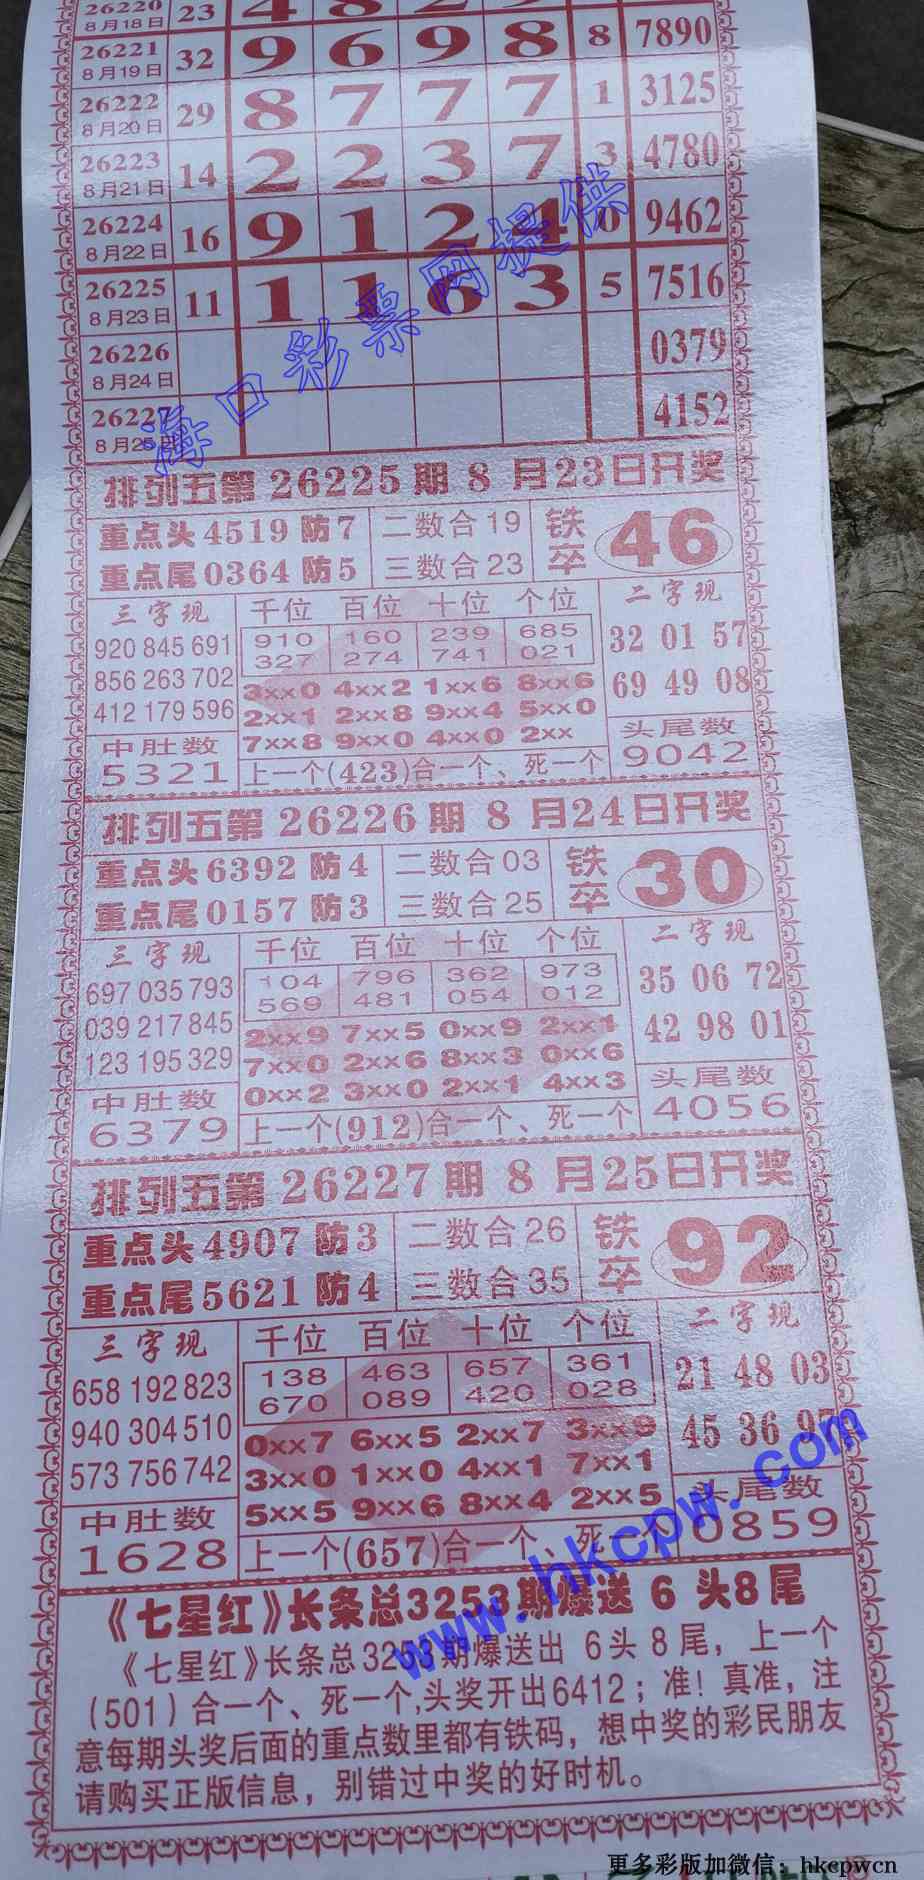 26220 23 4 8 2 9
8月18日
26221 32 9 6 9 8 8 7890
8月19日
26222 29 8 7 7 7 1 3125
8月20日
26223 14 2 2 3 7 3 4780
8月21日
26224 16 9 1 2 4 0 9462
8月22日
26225 11 1 1 6 3 5 7516
8月23日
26226 0379
8月24日
26227 4152
8月25日
海口彩票网提供
排列五第26225期8月23日开奖
重点头4519防7 二数合19 铁卒 46
重点尾0364防5 三数合23
三字现 千位 百位 十位 个位 二字现
920 845 691 910 160 239 685 32 01 57
327 274 741 021
856 263 702 3xx0 4xx2 1xx6 8xx6 69 49 08
412 179 596 2xx1 2xx8 9xx4 5xx0
中肚数 7xx8 9xx0 4xx0 2xx 头尾数
5321 上一个(423)合一个、死一个 9042
排列五第26226期8月24日开奖
重点头6392防4 二数合03 铁卒 30
重点尾0157防3 三数合25
三字现 千位 百位 十位 个位 二字现
697 035 793 104 796 362 973 35 06 72
569 481 054 012
039 217 845 2xx9 7xx5 0xx9 2xx1 42 98 01
123 195 329 7xx0 2xx6 8xx3 0xx6
中肚数 0xx2 3xx0 2xx1 4xx3 头尾数
6379 上一个(912)合一个、死一个 4056
排列五第26227期8月25日开奖
重点头4907防3 二数合26 铁卒 92
重点尾5621防4 三数合35
三字现 千位 百位 十位 个位 二字现
658 192 823 138 463 657 361 21 48 03
670 089 420 028
940 304 510 0xx7 6xx5 2xx7 3xx9 45 36 97
573 756 742 3xx0 1xx0 4xx1 7xx1
中肚数 5xx5 9xx6 8xx4 2xx5 头尾数
1628 上一个(657)合一个、死一个 0859
www.hkcpw.com
《七星红》长条总3253期爆送6头8尾
《七星红》长条总3253期爆送出 6头8尾，上一个
(501)合一个、死一个,头奖开出6412；准！真准，注
意每期头奖后面的重点数里都有铁码，想中奖的彩民朋友
请购买正版信息，别错过中奖的好时机。
更多彩版加微信：hkcpwcn